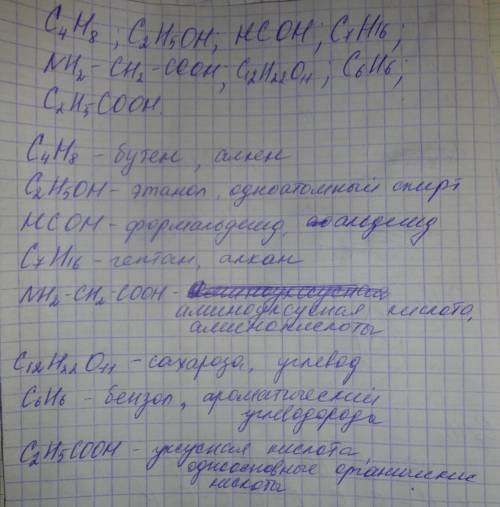 C4H8; C2H5OH; HCOH; C7H16;
NH2-CH2-COOH; C12H22O11; C6H6;
C2H5COOH.
C4H8 - бутен, алкен
C2H5OH - этанол, одноатомный спирт
HCOH - формальдегид, альдегид
C7H16 - гептан, алкан
NH2-CH2-COOH -
аминоуксусная кислота,
аминокислоты
C12H22O11 - сахароза, углевод
C6H6 - бензол, ароматический
углеводород
C2H5COOH - уксусная кислота
одноосновные органические
кислоты